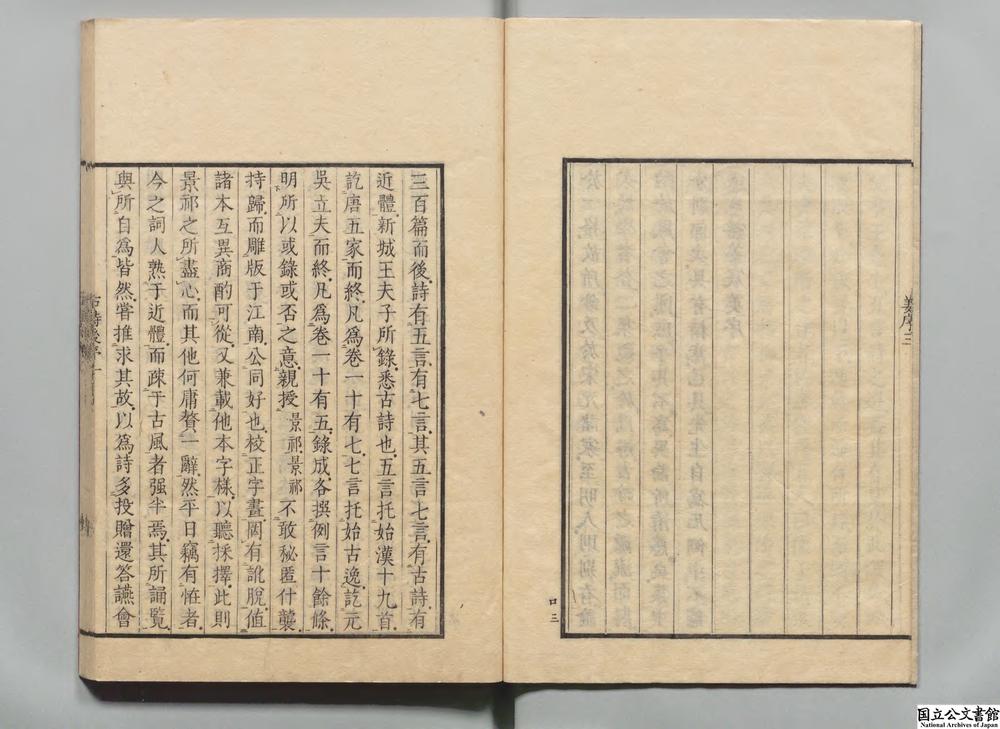 三百篇而後詩有五言有七言其五言七言有古詩有
近體新城王夫子所錄悉古詩也五言托始漢十九首
訖唐五家而終凡爲卷一十有七七言托始古逸訖元
吳立夫而終凡爲卷一十有五錄成各撰例言十餘條
明所以或錄或否之意親授景祁景祁不敢秘匿什襲
持歸而雕版于江南公同好也校正字畫閒有訛脫值
諸本互異商酌可從又兼載他本字樣以聽採擇此則
景祁之所盡心而其他何庸贅一辭然平日竊有怪者
今之詞人熟于近體而疎于古風者强半焉其所誦覽
與所自爲皆然嘗推求其故以爲詩多投贈還答讌會
古詩後序一
姜序三
口三
国立公文書館
National Archives of Japan